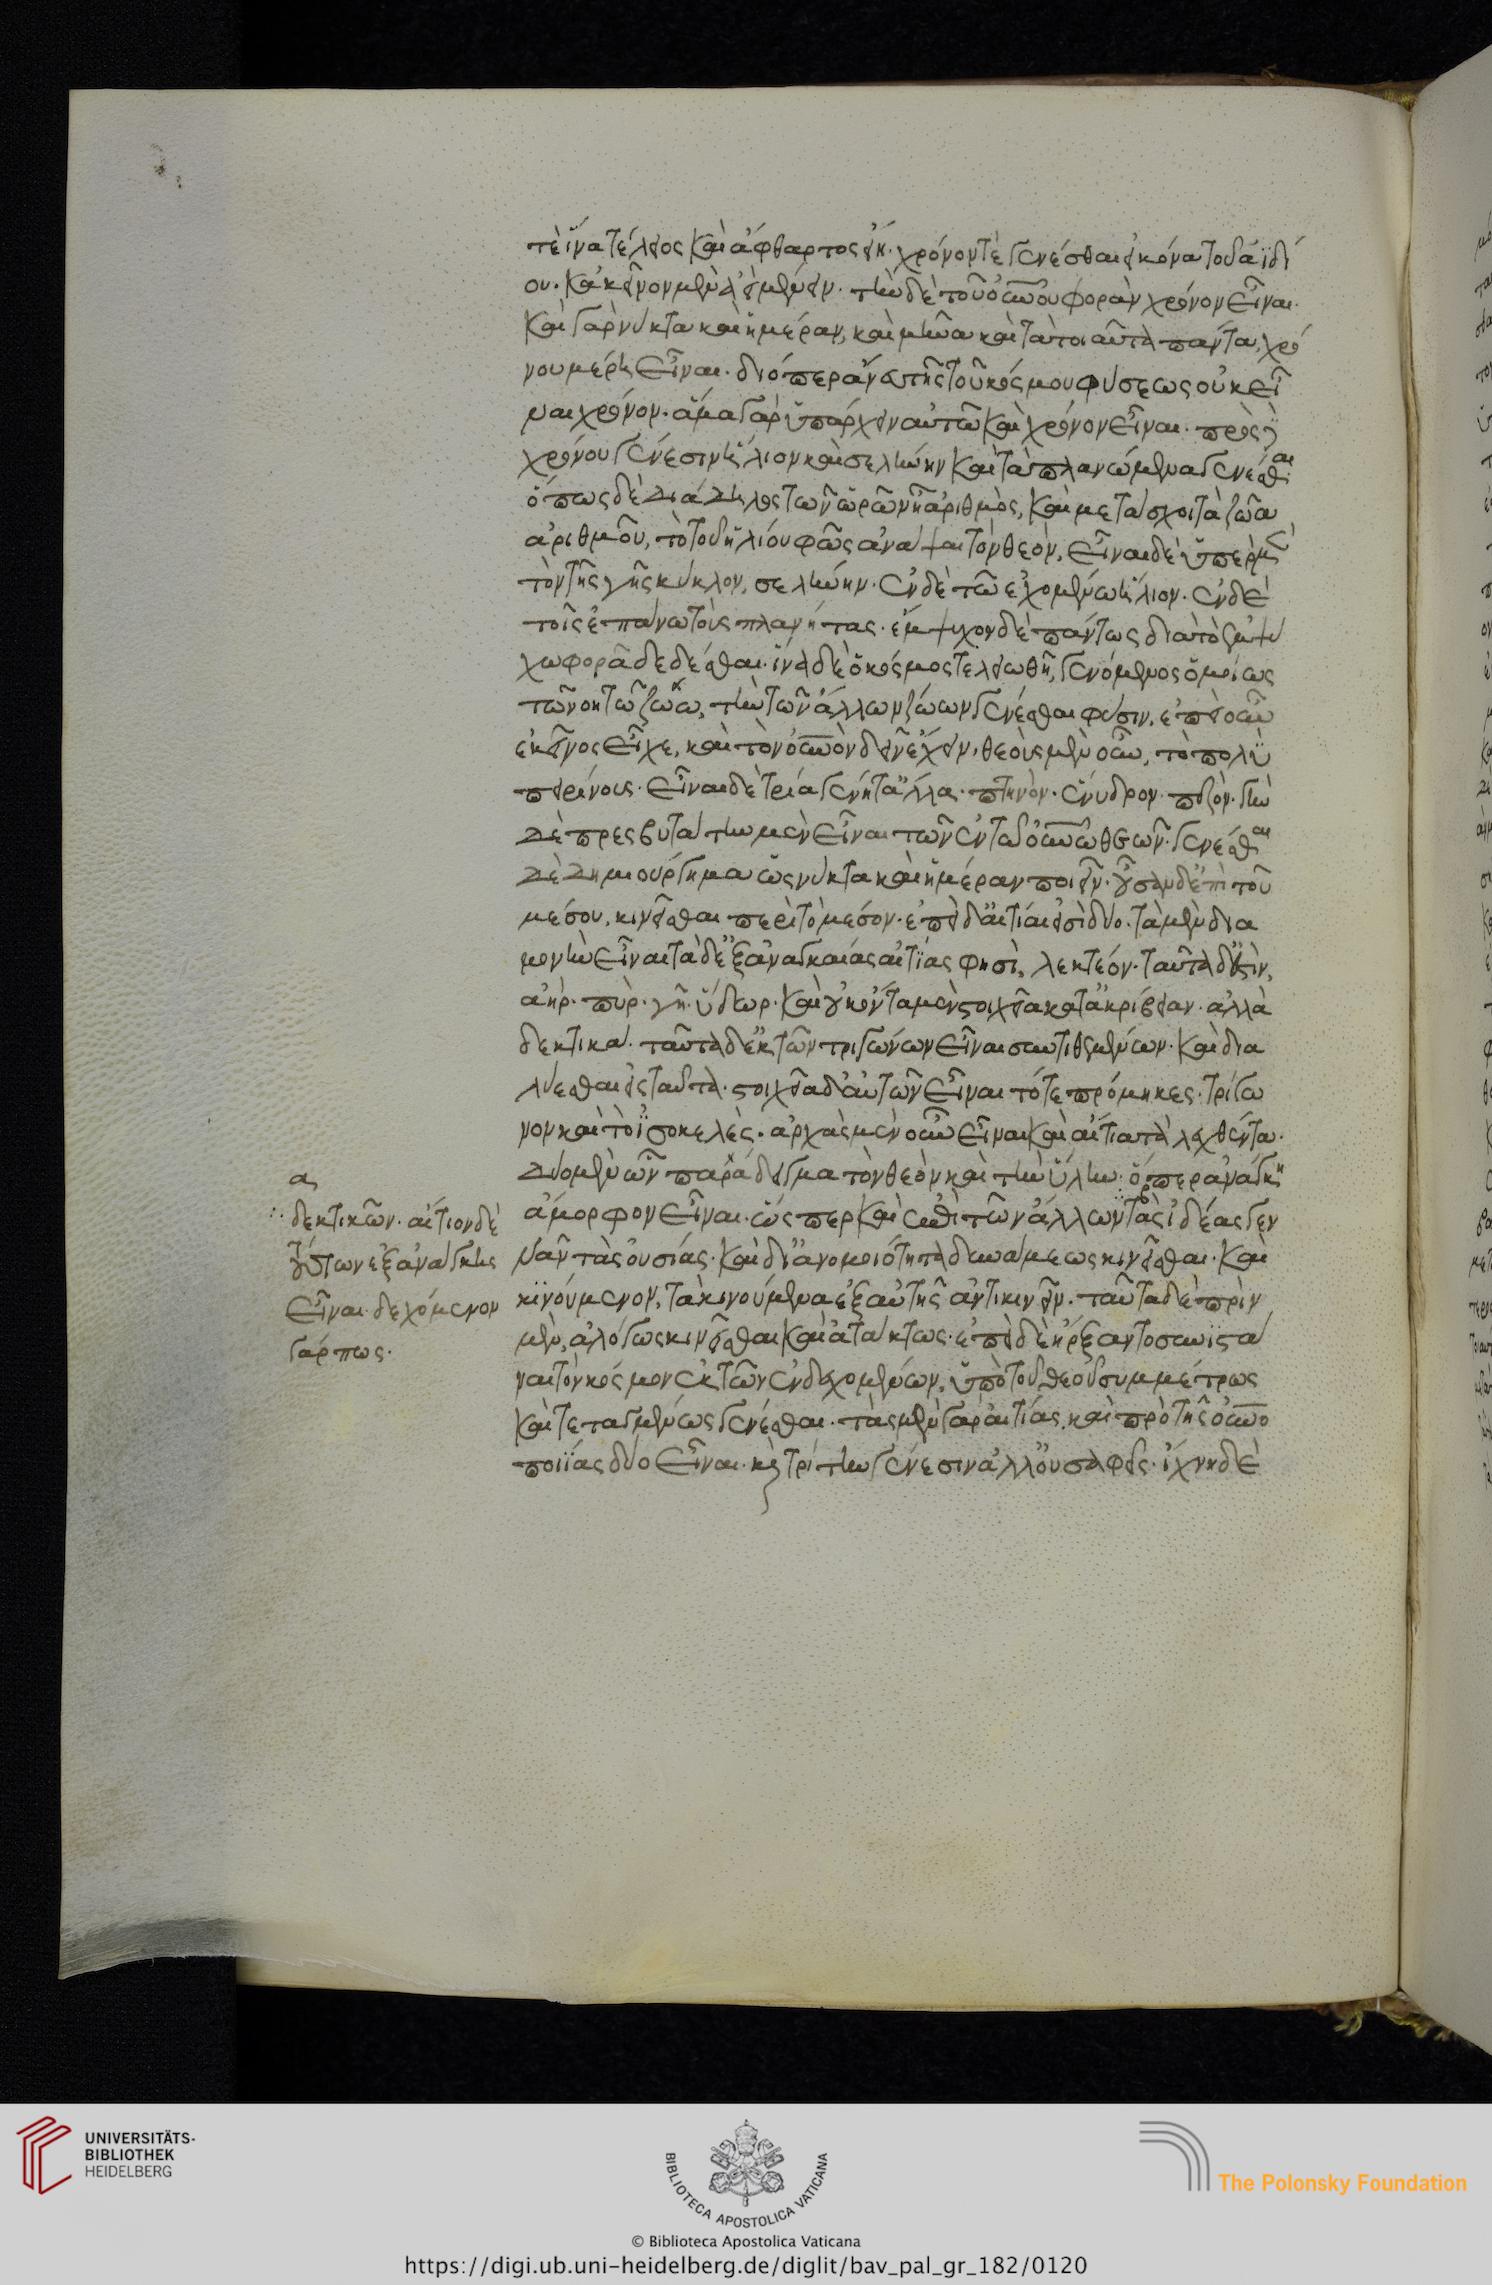 τὲ ἵνα τέλειος καὶ ἄφθαρτος εἴη. χρόνον τὲ γενέσθαι εἰκόνα τοῦ ἀϊδί
ου. κἀκεῖνον μὲν ἀεὶ μένειν. τὴν δὲ τοῦ οὐ̅νου φορὰν χρόνον εἶναι.
καὶ γὰρ νύκτα καὶ ἡμέραν, καὶ μῆνα καὶ τὰ τοιαῦτα πάντα, χρό
νου μέρη εἶναι. διόπερ ἄνευ τῆς τοῦ κόσμου φύσεως οὐκ εἶ
ναι χρόνον. ἅμα γὰρ ὑπάρχειν αὐτῶ καὶ χρόνον εἶναι. πρὸς δὲ
χρόνου γένεσιν ἥλιον καὶ σελήνην καὶ τὰ πλανώμενα γενέσθαι.
ὅπως δὲ διάδηλος τῶν ὡρῶν ᾖ ἀριθμὸς, καὶ μετάσχοι τὰ ζῶα
ἀριθμοῦ, τὸ τοῦ ἡλίου φῶς ἀνάψαι τὸν θεὸν, εἶναι δὲ ὑπὲρ μὲν
τὸν τῆς γῆς κύκλον, σελήνην. ἐν δὲ τῶ ἐχομένω ἥλιον. ἐν δὲ
τοῖς ἐπάνω τοὺς πλανήτας. ἔμψυχον δὲ πάντως διὰ τὸ ἐμψύ
χω φορᾶ δεδέσθαι. ἵνα δὲ ὁ κόσμος τελειωθῆ, γενόμενος ὅμοιος
τῶ νοητῶ ζώω, τὴν τῶν ἄλλων ζώων γενέσθαι φύσιν, ἐπεὶ οὖν
ἐκεῖνος εἶχε, καὶ τὸν οὐ̅νὸν δεῖν ἔχειν, θεοὺς μὲν οὖν, τὸ πολὺ
πυρίνους. εἶναι δὲ τρία γένη τἄλλα. πτηνὸν. ἔνυδρον. πεζὸν. γῆν
δὲ πρεσβυτάτην μὲν εἶναι τῶν ἐν τῶ οὐ̅νῶ θεῶν. γενέσθαι
δὲ δημιούργημα ὡς νύκτα καὶ ἡμέραν ποιεῖν. οὖσαν δ' ἐπὶ τοῦ
μέσου, κινεῖσθαι περὶ τὸ μέσον. ἐπεὶ δ' αἰτίαι εἰσὶ δύο. τὰ μὲν διὰ
νοῦν εἶναι τὰ δὲ ἐξ ἀναγκαίας αἰτίας φησὶ, λεκτέον. ταῦτα δ' ἐσὶν,
ἀὴρ. πῦρ. γῆ. ὕδωρ. καὶ οὐκ ὄντα μὲν στοιχεῖα κατ' ἀκρίβειαν. ἀλλὰ
δεκτικά. ταῦτα δὲ ἐκ τῶν τριγώνων εἶναι συντιθεμένων. καὶ δια
λύεσθαι εἰς ταῦτα. στοιχεῖα δ' αὐτῶν εἶναι τό τε πρόμηκες. τρίγω
νον καὶ τὸ ἰσοσκελὲς. ἀρχὰς μὲν οὖν εἶναι καὶ αἴτια τὰ λεχθέντα.
δύο μὲν ὧν παράδειγμα τὸν θεὸν καὶ τὴν ὕλην. ὅπερ ἀνάγκη
ἄμορφον εἶναι. ὥσπερ καὶ ἐπὶ τῶν ἄλλων
α
∴ δεκτικῶν. αἴτιον δὲ
τούτων ἐξ ἀνάγκης
εἶναι. δεχόμενον
γάρ πως.
τὰς ἰδέας γεν
νᾶν τὰς οὐσίας. καὶ δι' ἀνομοιότητα δυνάμεως κινεῖσθαι. καὶ
κινούμενον, τὰ κινούμενα ἐξ αὐτῆς ἀντικινεῖν. ταῦτα δὲ πρὶν
μὲν, ἀλόγως κινεῖσθαι καὶ ἀτάκτως. ἐπεὶ δὲ ἤρξαντο συνιστά
ναι τὸν κόσμον ἐκ τῶν ἐνδεχομένων, ὑπὸ τοῦ θεοῦ συμμέτρως
καὶ τεταγμένως γενέσθαι. τὰς μὲν γὰρ αἰτίας, καὶ πρὸ τῆς οὐ̅νο
ποιΐας δύο εἶναι. καὶ τρίτην γένεσιν ἀλλ' οὐ σαφεῖς. ἴχνη δὲ
UNIVERSITÄTS-
BIBLIOTHEK
HEIDELBERG
BIBLIOTECA APOSTOLICA VATICANA
© Biblioteca Apostolica Vaticana
The Polonsky Foundation
https://digi.ub.uni-heidelberg.de/diglit/bav_pal_gr_182/0120